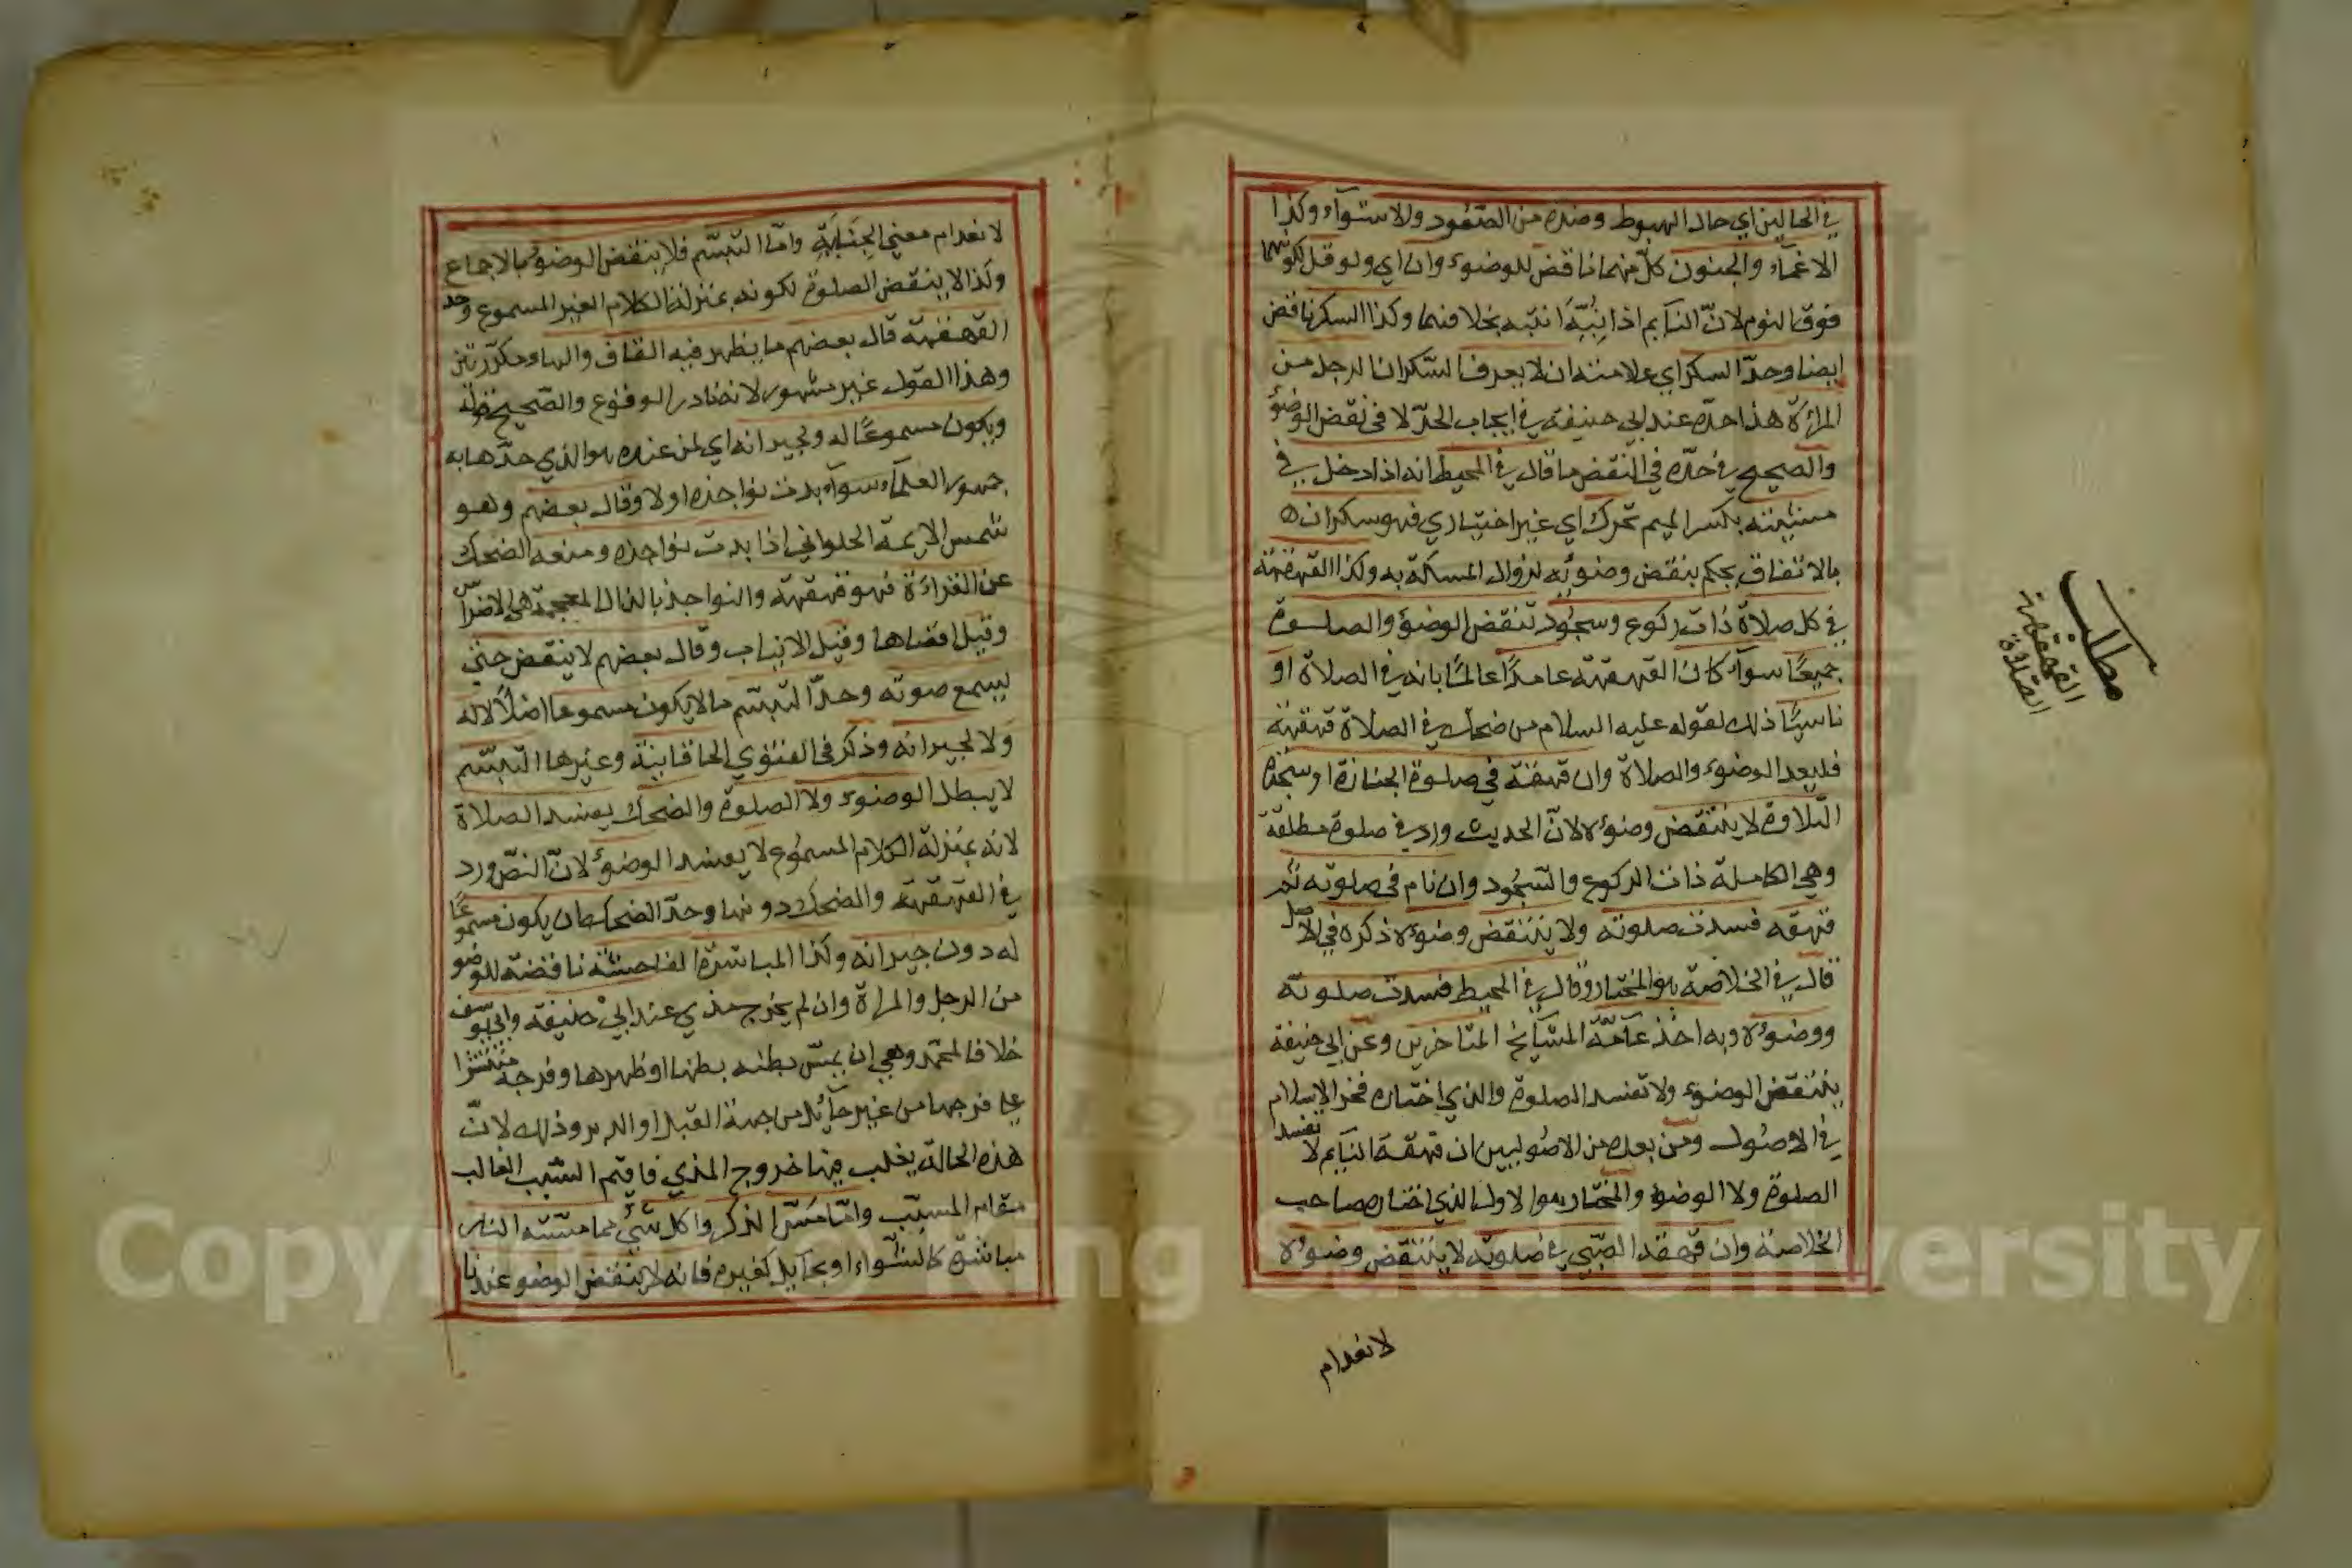 في الحالين اي حال الهبوط وضده من الصعود والاستوآء وكذا
الاغمآء والجنون كلّ منهما ناقض للوضوء وان اي ولو قل لكونهما
فوق النوم لانّ النآيم اذا نُبِّهَ انتبه بخلافهما وكذا السكر ناقض
ايضا وحدّ السكر اي علامته ان لا يعرف السّكران الرجل من
المراة هذا حدّه عند ابي حنيفة في ايجاب الحدّ لا في نقض الوضوء
والصحيح في حدّه في النقض ما قال في المحيط انه اذا دخل في
مشيته بكسر الميم تحرك اي غير اختياري فهو سكران ه
بالاتفاق يحكم بنقض وضوئه لزوال المسكة به وكذا القهقهة
في كل صلاة ذات ركوع وسجُود تنقض الوضوء والصلوة
جميعًا سوآء كان القهقهة عامدًا عالمًا بانه في الصلاة او
ناسيًا ذلك لقوله عليه السلام من ضحك في الصلاة قهقهة
فليعد الوضوء والصلاة وان قهقهة في صلوة الجنازة او سجدة
التلاوة لا ينتقض وضوءه لانّ الحديث ورد في صلوة مطلقة
وهي الكاملة ذات الركوع والسّجُود وان نام في صلوته ثم
قهقه فسدت صلوته ولا ينتقض وضوءه ذكره في الاصل
قال في الخلاصة هو المختار وقال في المحيط فسدت صلوته
ووضوءه وبه اخذ عامّة المشآيخ المتاخرين وعن ابي حنيفة
ينتقض الوضوء ولا تفسد الصلوة والذي اختاره فخر الاسلام
في الاصول ومن بعده من الاصوليين ان قهقهة النآيم لا تفسد
الصلوة ولا الوضوء والمختار هو الاول الذي اختاره صاحب
الخلاصة وان قهقه الصّبي في صلوته لا ينتقض وضوءه
لانعدام
مطلب
القهقهة
الصلاة
لانعدام معنى الجنَايَةِ وامّا التبسّم فلا ينقض الوضوء بالاجماع
وكذا لا ينقض الصلوة لكونه بمنزلة الكلام الغير المسموع وحد
القهقهة قال بعضهم ما يظهر فيه القاف والهاء مكررتين
وهذا القول غير مشهور لانه نادر الوقوع والصّحيح
ويكون مسموعًا له ولجيرانه اي لمن عنده هو الذي حدّها به
جمهور العلمآء سوآء بدت نواجذه او لا وقال بعضهم وهو
شمس الايمة الحلواني اذا بدت نواجذه ومنعه الضحك
عن القراءة فهو قهقهة والنواجذ بالذال المعجمة هي الاضراس
وقيل اقصاها وقيل الانياب وقال بعضهم لا ينقض حتى
يسمع صوته وحدّ التبسّم ما لا يكون مسموعا اصلًا لا له
ولا لجيرانه وذكر في الفتوي الخاقانية وغيرها التبسّم
لا يبطل الوضوء ولا الصلوة والضحك يفسد الصلاة
لانه بمنزلة الكلام المسموع لا يفسد الوضوء لانّ النصّ ورد
في القهقهة والضحك دونها وحدّ الضحك ان يكون مسموعًا
له دون جيرانه وكذا المباشرة الفاحشة ناقضة للوضو
من الرجل والمراة وان لم يخرج مذي عند ابي حنيفة وابي يوسف
خلافا لمحمّد وهي ان يمسّ بطنه بطنها او ظهرها وفرجه منتشرا
علي فرجها من غير حآئل من جهة القبل او الدبر وذلك لانّ
هذه الحالة يغلب فيها خروج المذي فاقيم السّبب الغالب
مقام المسبّب وامّا مَسّ الذكر واكل شئ مما مسّته النار
مباشرة كالشواء او بحآيل كغيره فانه لا ينقض الوضو عندنا